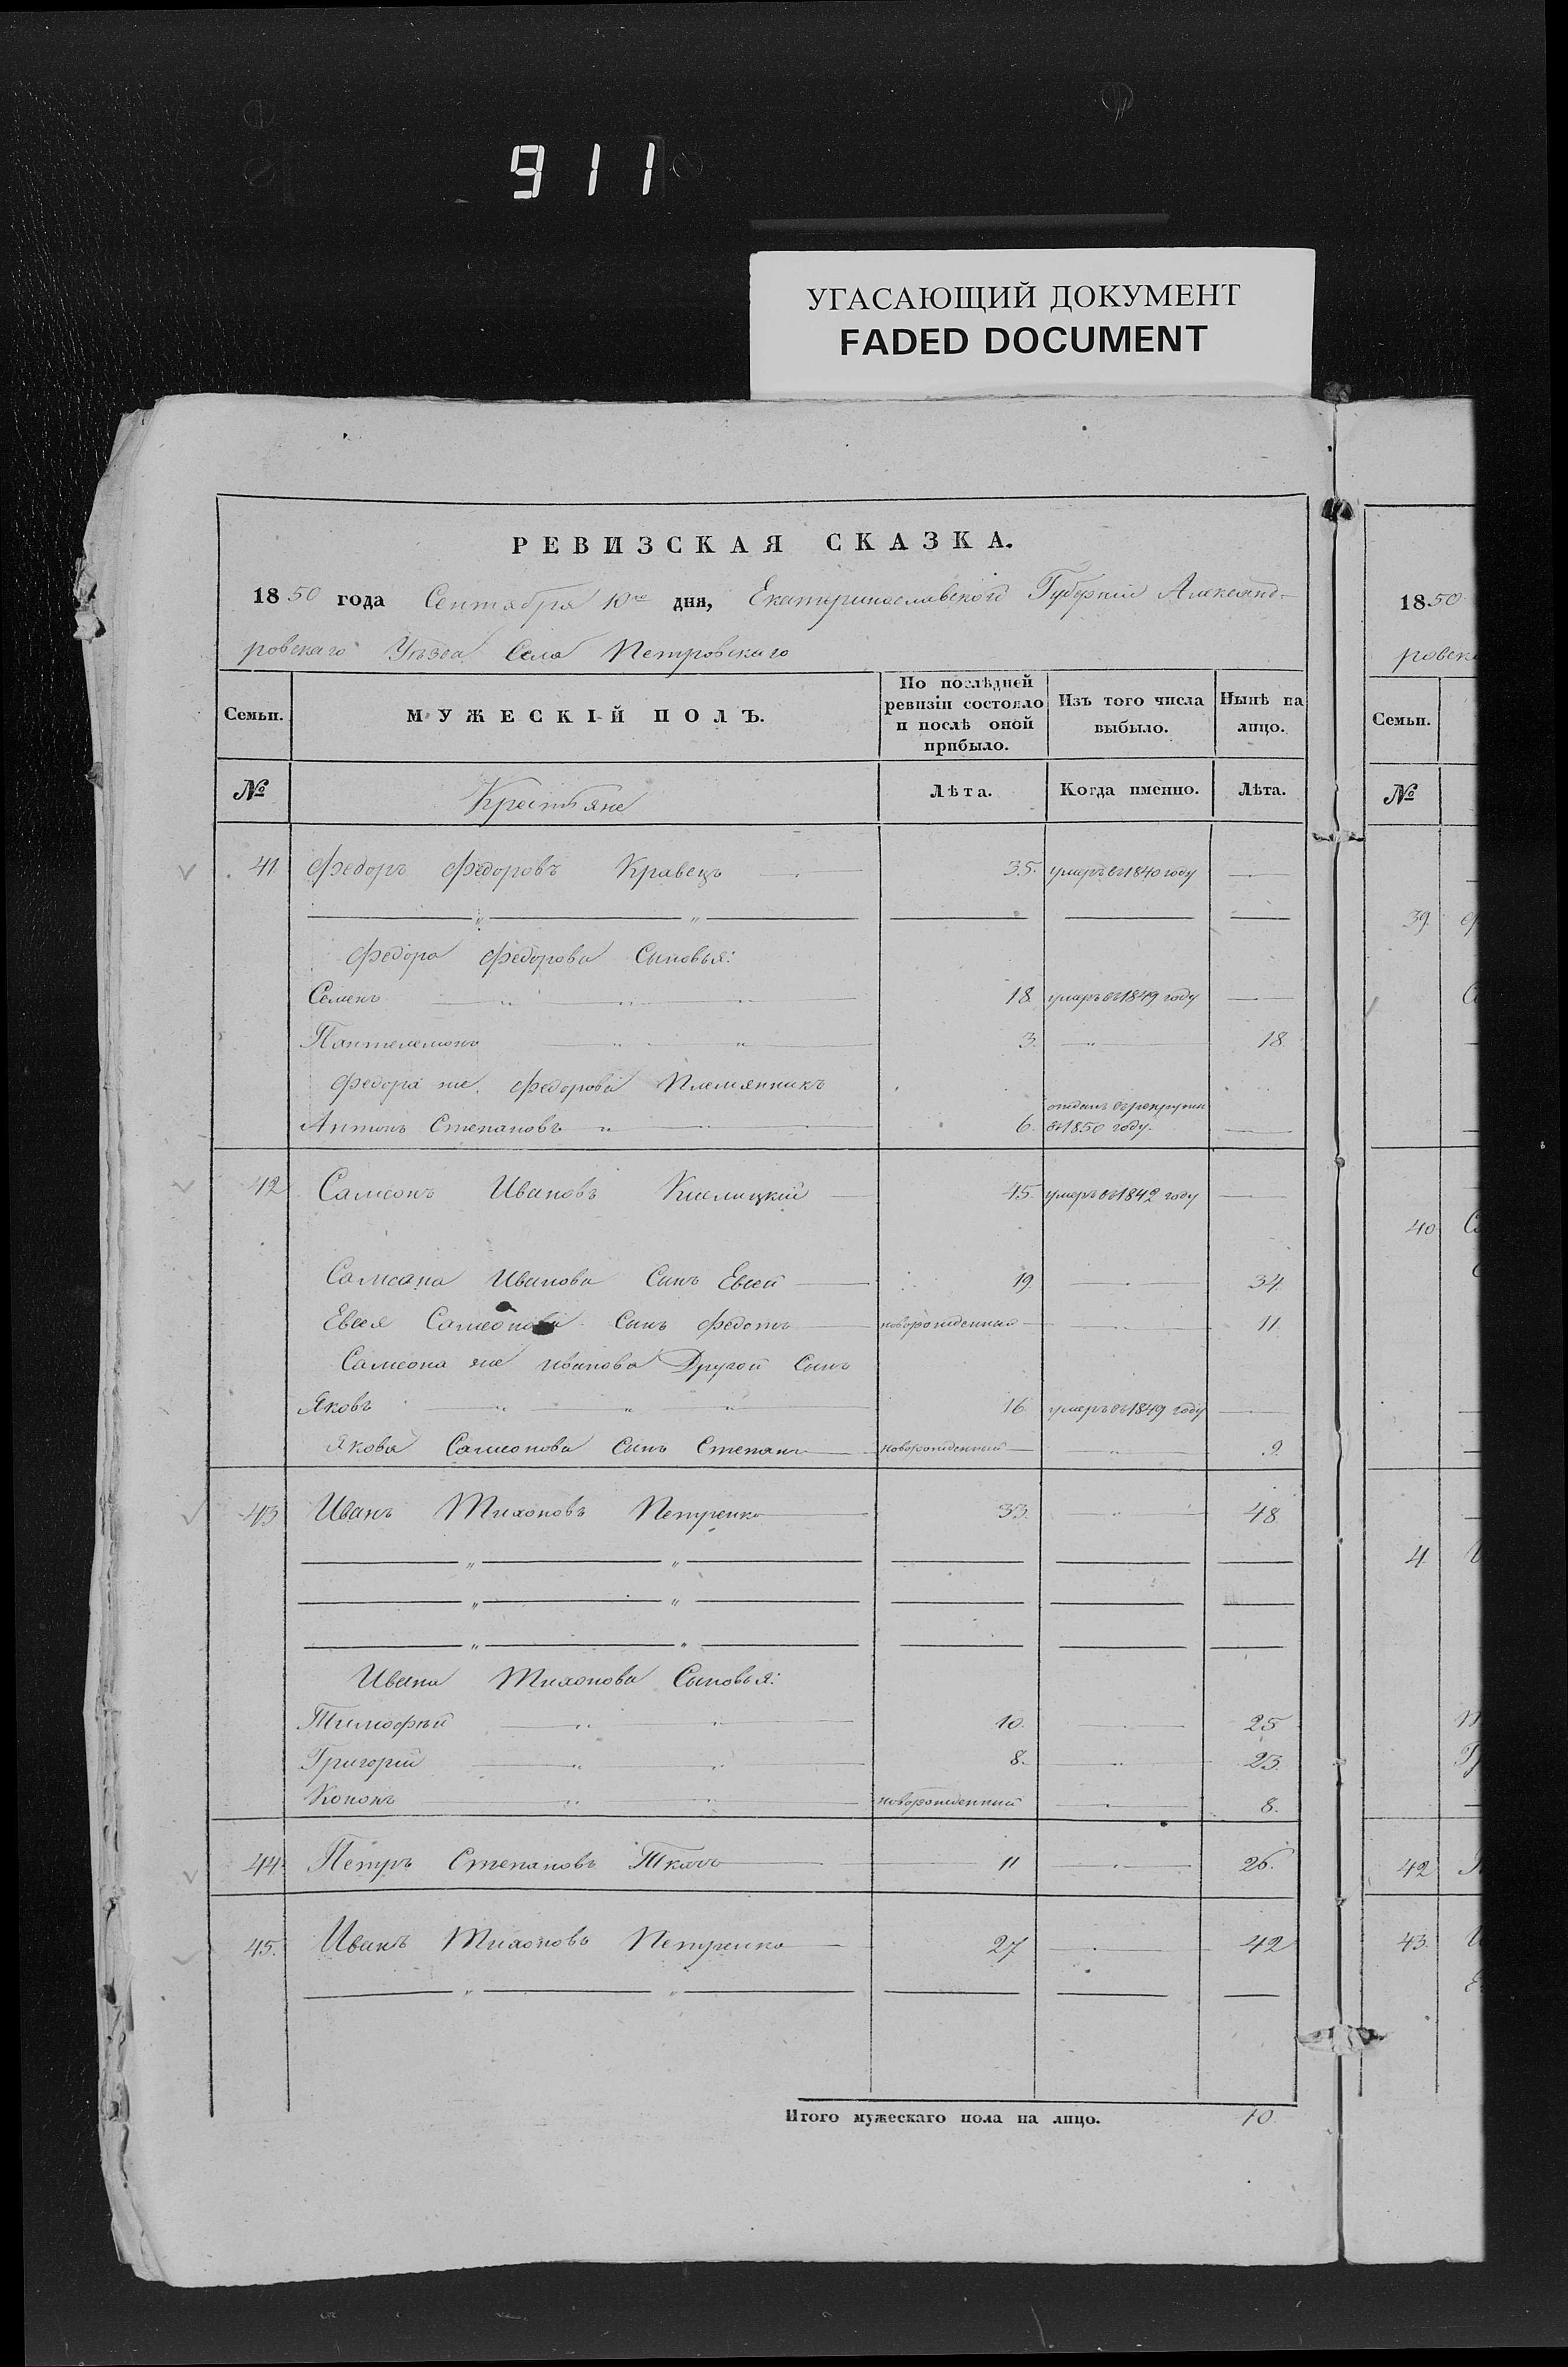 911
УГАСАЮЩИЙ ДОКУМЕНТ
FADED DOCUMENT
РЕВИЗСКАЯ СКАЗКА.
1850 года Сентября 10го дня, Екатеринославской Губернии Александ-
ровскаго Уѣзда Села Петровскаго
Семьи. МУЖЕСКІЙ ПОЛЪ. По послѣдней ревизіи состояло и послѣ оной прибыло. Изъ того числа выбыло. Нынѣ на лицо.
№ Крестьяне Лѣта. Когда именно. Лѣта.
41 Федоръ Федоровъ Кравецъ 35. умеръ въ 1840 году
Федора Федорова Сыновья:
Семенъ 18 умеръ въ 1849 году
Пантелемонъ 3. 18
Федора же Федорова Племянникъ
Антонъ Степановъ 6. отданъ въ рекруты въ 1850 году.
42 Самсонъ Ивановъ 45. умеръ въ 1842 году
Самсона Иванова Сынъ Евсей 19 34
Евсея Самсонова Сынъ Федотъ новорожденный 11
Самсона же Иванова Другой Сынъ
Яковъ 16 умеръ въ 1849 году
Якова Самсонова Сынъ Степанъ новорожденный 9.
43 Иванъ Тихоновъ Петренко 33. 48
Ивана Тихонова Сыновья:
Тимофѣй 10. 25
Григорій 8. 23
Кононъ новорожденный 8.
44 Петръ Степановъ Ткачъ 11 26.
45. Иванъ Тихоновъ Петренко 27 42
Итого мужескаго пола на лицо. 10
1850
ровска
Семьи.
№
39.
40
4
42
43.